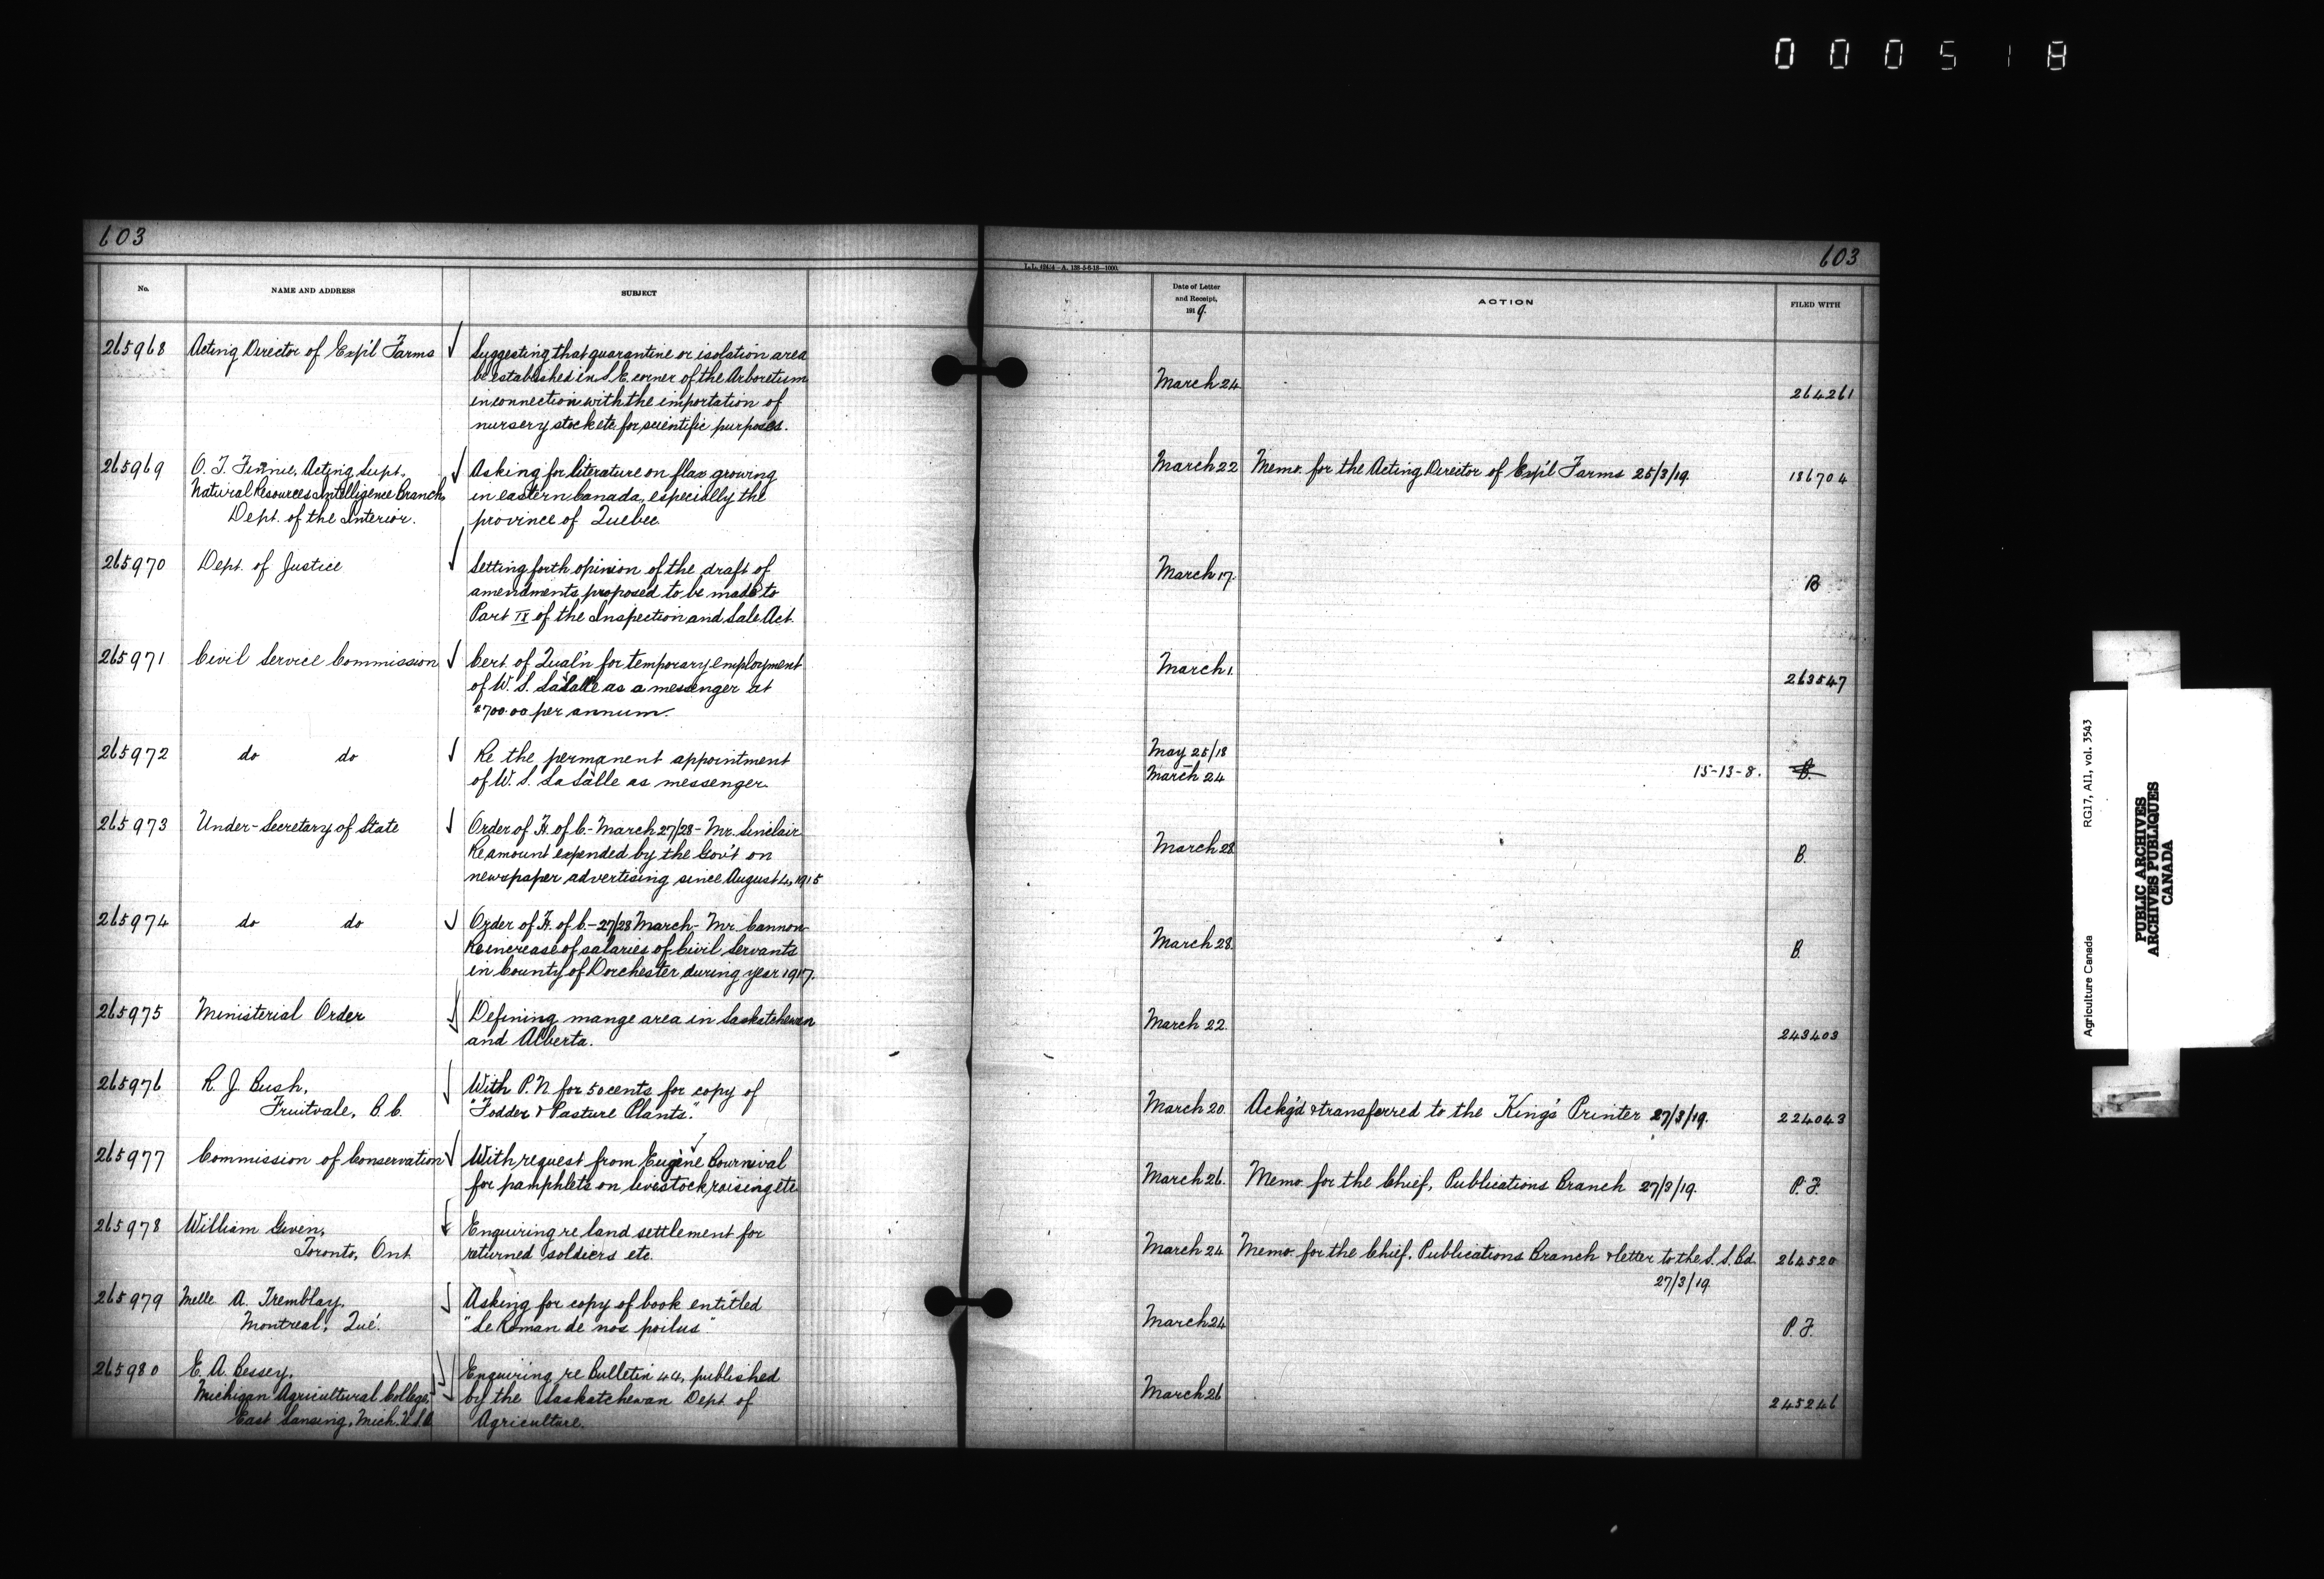 000518
603
603
L.L. 42414-A. 138-5-6-18-1000.
No.
NAME AND ADDRESS
SUBJECT
Date of Letter and Receipt, 1919.
ACTION
FILED WITH
265968
Acting Director of Exp'l Farms
Suggesting that quarantine or isolation area
be established in S.E. corner of the Arboretum
in connection with the importation of
nursery stock etc. for scientific purposes.
March 24
264261
265969
O. T. Finnie, Acting Supt.
Natural Resources Intelligence Branch,
Dept. of the Interior.
Asking for literature on flax growing
in eastern Canada, especially the
province of Quebec.
March 22
Memo. for the Acting Director of Exp'l Farms 25/3/19.
186704
265970
Dept. of Justice
Setting forth opinion of the draft of
amendments proposed to be made to
Part IX of the Inspection and Sale Act.
March 17.
B
265971
Civil Service Commission
Cert. of Qual'n for temporary employment
of W. S. LaSalle as a messenger at
$700.00 per annum.
March 1.
263547
265972
do do
Re the permanent appointment
of W. S. LaSalle as messenger.
May 25/18
March 24
15-13-8.
B.
265973
Under-Secretary of State
Order of H. of C. - March 27/28 - Mr. Sinclair
Re amount expended by the Gov't on
newspaper advertising since August 4, 1915
March 28
B.
265974
do do
Order of H. of C. - 27/28 March - Mr. Cannon
Re increase of salaries of Civil Servants
in County of Dorchester during year 1917.
March 28.
B.
265975
Ministerial Order
Defining mange area in Saskatchewan
and Alberta.
March 22.
243403
265976
R. J. Bush,
Fruitvale, B.C.
With P.N. for 50 cents for copy of
"Fodder & Pasture Plants."
March 20
Ackg'd & transferred to the King's Printer 27/3/19.
224043
265977
Commission of Conservation
With request from Eugène Bournival
for pamphlets on livestock raising etc.
March 26.
Memo. for the Chief, Publications Branch 27/3/19.
P.F.
265978
William Given,
Toronto, Ont.
Enquiring re land settlement for
returned soldiers etc.
March 24
Memo. for the Chief, Publications Branch & letter to the S.S. Bd.
27/3/19
264520
265979
Melle A. Tremblay,
Montreal, Que.
Asking for copy of book entitled
"Le Roman de nos poilus"
March 24
P.F.
265980
E. A. Bessey,
Michigan Agricultural College,
East Lansing, Mich. U.S.A.
Enquiring re Bulletin 44, published
by the Saskatchewan Dept. of
Agriculture.
March 26
245246
Agriculture Canada RG17, AII, vol. 3543
PUBLIC ARCHIVES
ARCHIVES PUBLIQUES
CANADA